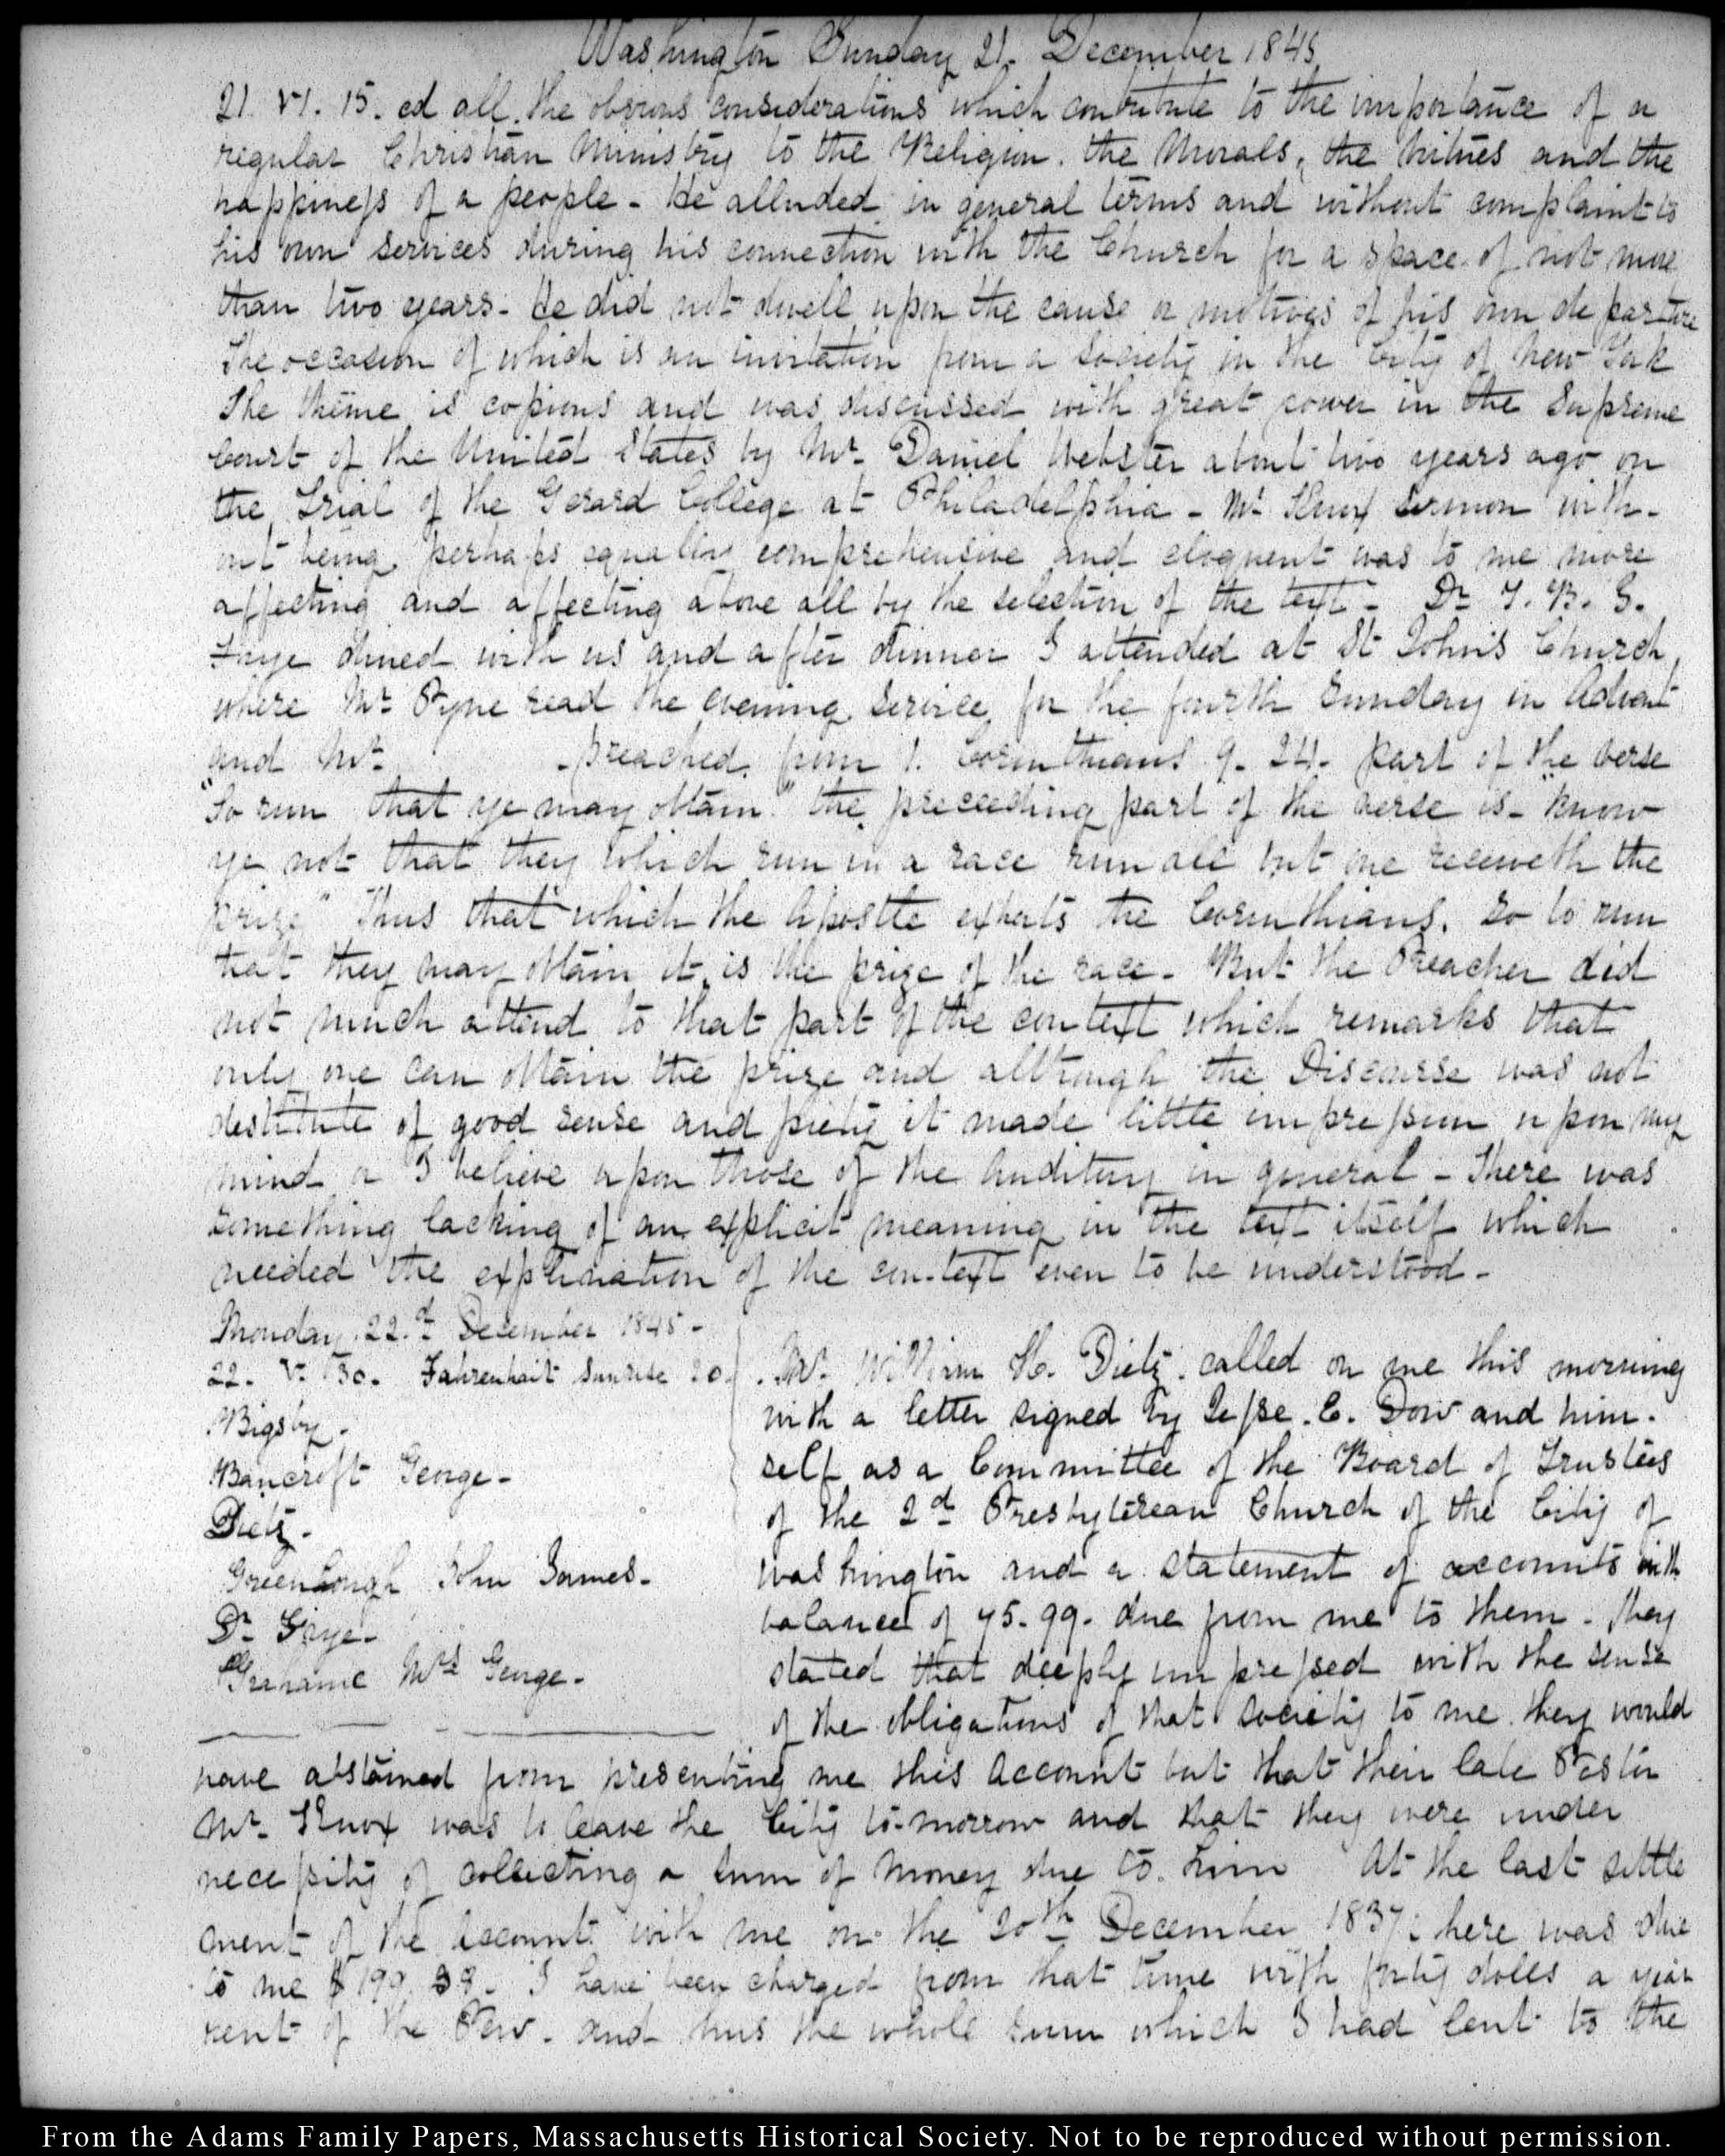 Washington Sunday 21. December 1845
21. VI. 15. ed all the obvious considerations which contribute to the importance of a
regular Christian Ministry to the Religion, the Morals, the Virtues and the
happiness of a people - He alluded in general terms and without complaint to
his own services during his connection with the Church for a space of not more
than two years - He did not dwell upon the cause or motives of his own departure
The occasion of which is an invitation from a Society in the City of New York
The theme is copious and was discussed with great power in the Supreme
Court of the United States by Mr. Daniel Webster about two years ago on
the Trial of the Gerard College at Philadelphia - Mr Knox sermon with-
out being perhaps equally comprehensive and eloquent was to me more
affecting and affecting above all by the selection of the text - Dr
dined with us and after dinner I attended at St John's Church,
where Mr Pyne read the evening service for the fourth Sunday in Advent
and Mr. - preached from 1. Corinthians 9. 24. part of the verse
"So run that ye may obtain" the preceeding part of the verse is - "Know
ye not that they which run in a race run all but one receiveth the
prize" Thus that which the Apostle exhorts the Corinthians, so to run
that they may obtain it, is the prize of the race - But the Preacher did
not much attend to that part of the context which remarks that
only one can obtain the prize and although the Discourse was not
destitute of good sense and piety it made little impression upon my
mind or I believe upon those of the Auditory in general - There was
something lacking of an explicit meaning in the text itself which
needed the explanation of the con-text even to be understood -
Monday 22.d December 1845 -
22. V. 30. Fahrenheit Sunrise 20.
Bigsby -
Bancroft George -
Dietz -
Greenhough John James -
Dr. Gaye -
Grahame Mrs George -
Mr. William H. Dietz called on me this morning
with a letter signed by Jesse. E. Dow and him-
self as a Committee of the Board of Trustees
of the 2d Presbyterean Church of the City of
Washington and a statement of accounts with
balance of 45.99. due from me to them - They
stated that deeply impressed with the sense
of the obligations of that society to me they would
have abstained from presenting me this Account but that their late Pastor
Mr. Knox was to leave the City to-morrow and that they were under
necessity of collecting a sum of Money due to him At the last settle
ment of the Account with me on the 20th December 1837 there was due
to me $ 199.39. I have been charged from that time with forty dolls a year
rent of the Pew - and thus the whole sum which I had lent to the
From the Adams Family Papers, Massachusetts Historical Society. Not to be reproduced without permission.